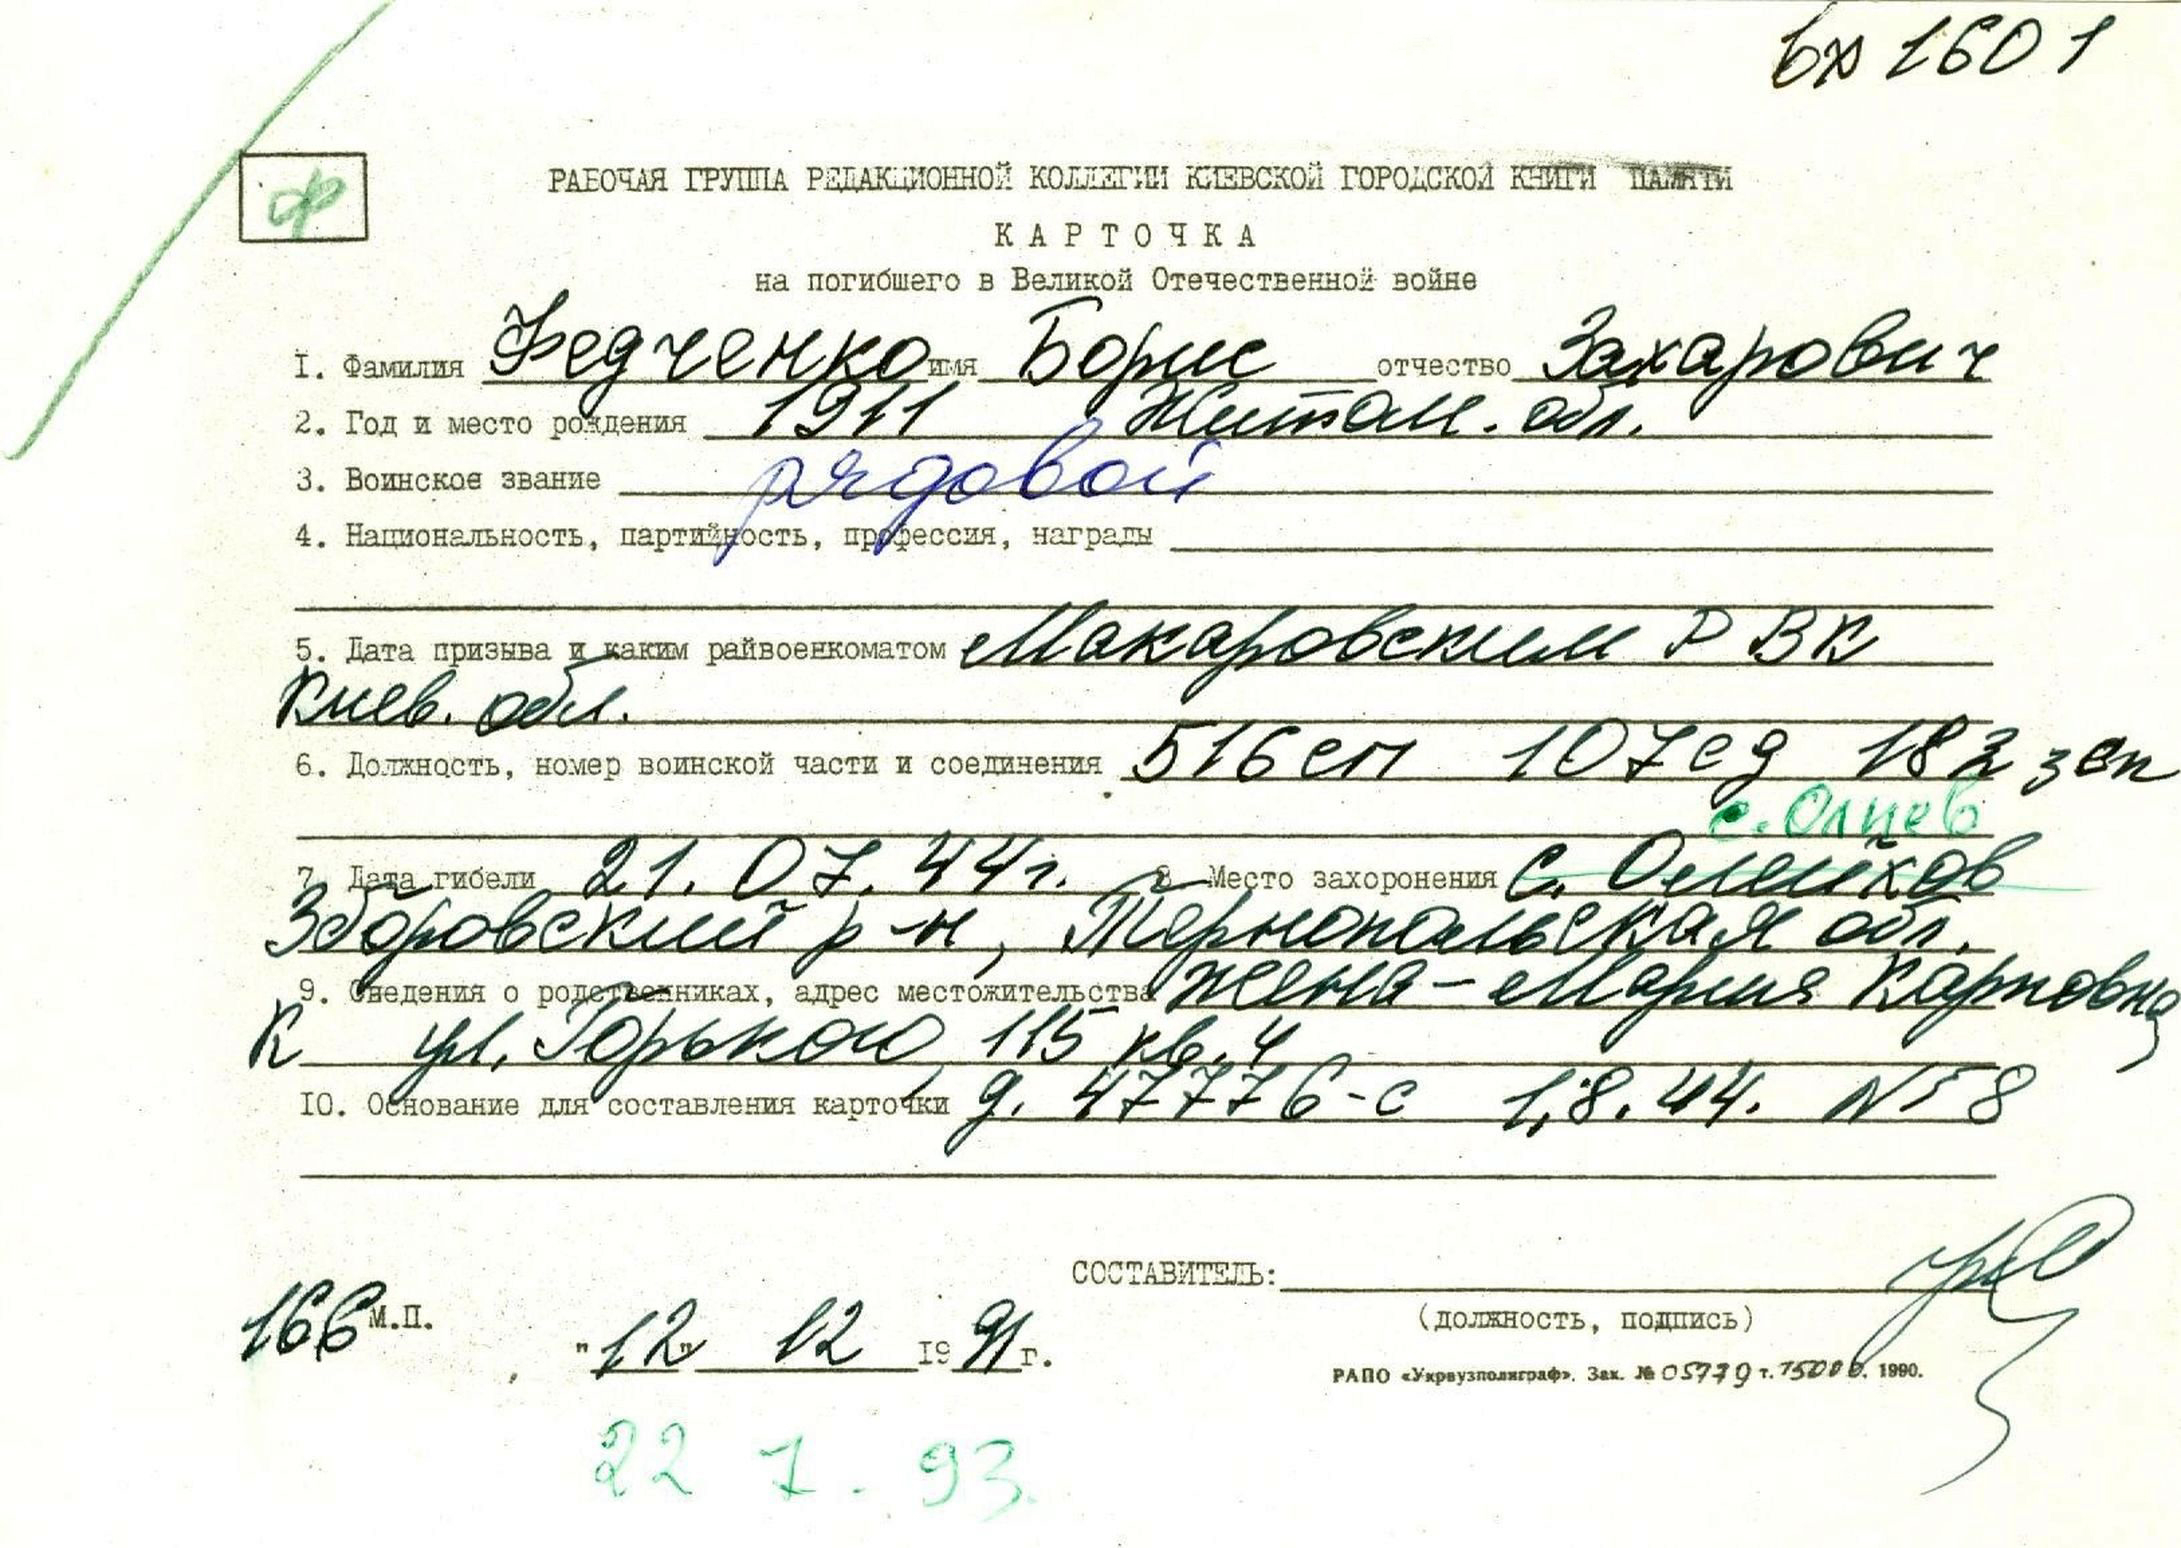 вх 1601
Ф
РАБОЧАЯ ГРУППА РЕДАКЦИОННОЙ КОЛЛЕГИИ КИЕВСКОЙ ГОРОДСКОЙ КНИГИ ПАМЯТИ
КАРТОЧКА
на погибшего в Великой Отечественной войне
1. Фамилия Федченко имя Борис отчество Захарович
2. Год и место рождения 1911 Житом. обл.
3. Воинское звание рядовой
4. Национальность, партийность, профессия, награды
5. Дата призыва и каким райвоенкоматом Макаровским РВК
Киев. обл.
6. Должность, номер воинской части и соединения 516 сп 107 сд 182 зсп
с. Олиев
7 Дата гибели 21.07.44г. 8 Место захоронения с. Олейков
Зборовский р-н, Тернопольская обл.
9. Сведения о родственниках, адрес местожительства жена - Мария Карповна
К ул. Горького, 115 кв. 4
10. Основание для составления карточки д. 47776-с 1.8.44. № 58
СОСТАВИТЕЛЬ:
(должность, подпись)
166 М.П.
"12" 12 1991г.
РАПО «Укрвузполиграф». Зак. № 05779 т. 15000. 1990.
22 7. 93.